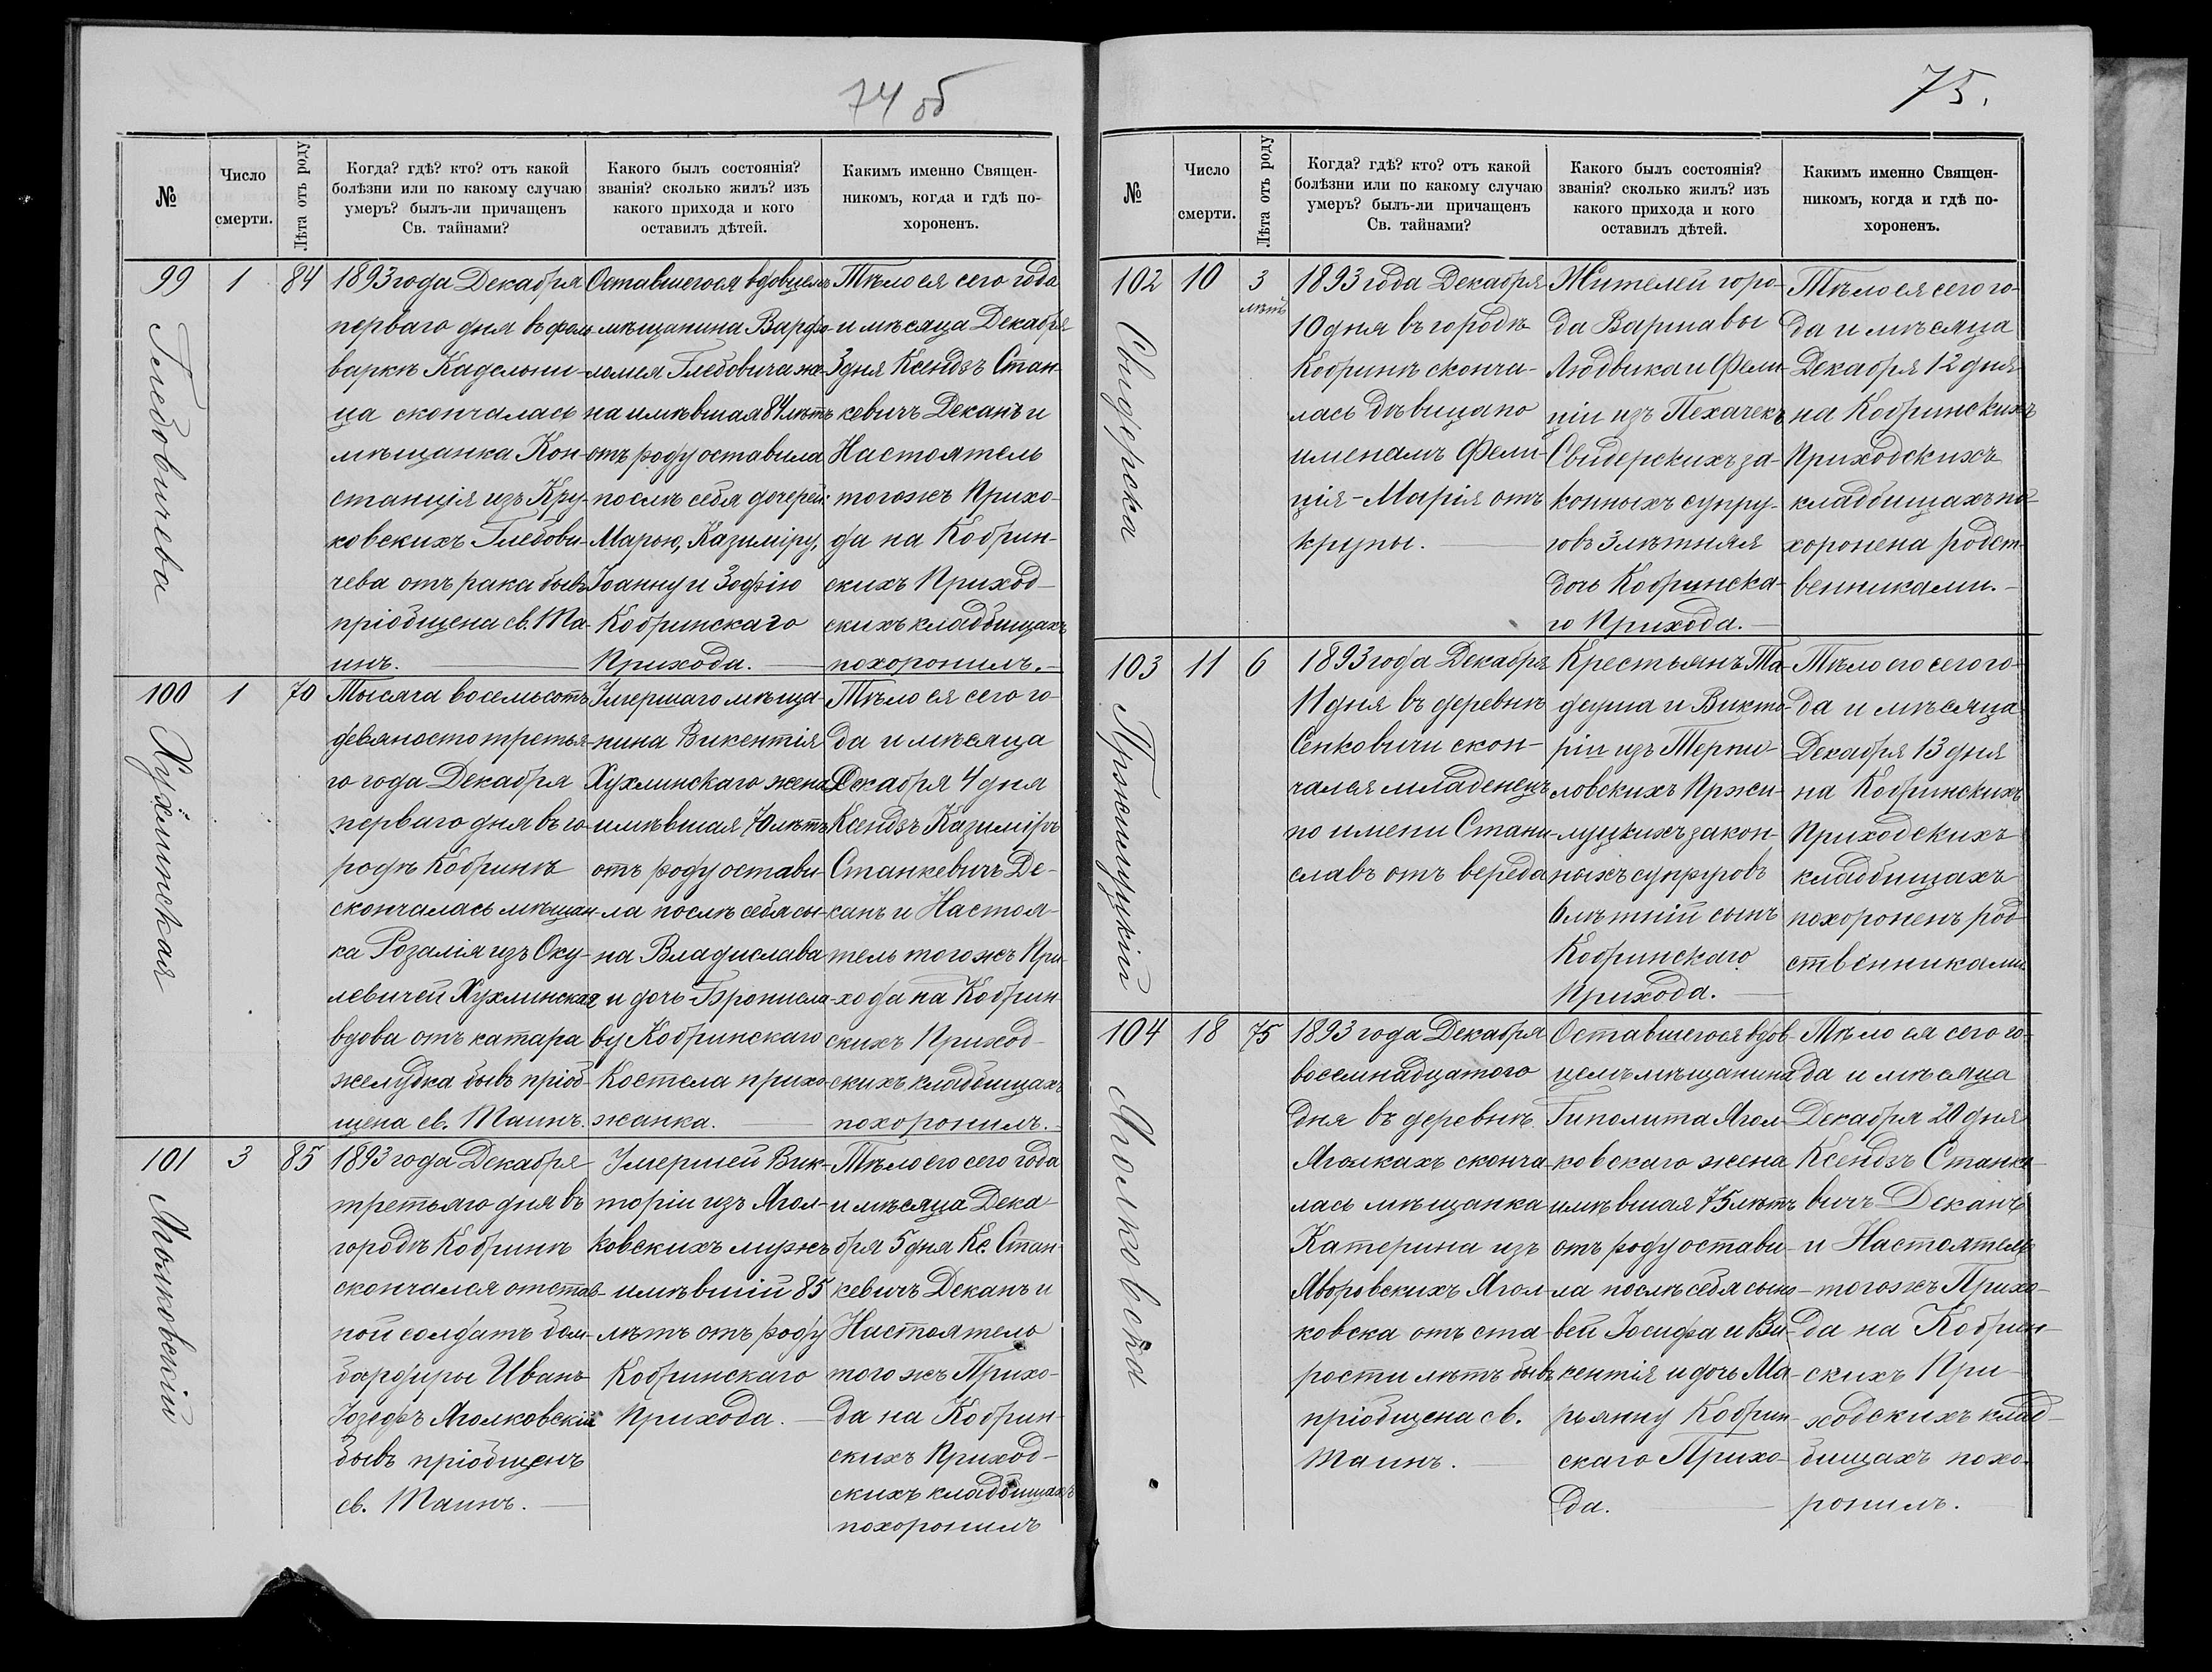 74 об
№
Число
смерти.
Лѣта отъ роду
Когда? гдѣ? кто? отъ какой
болѣзни или по какому случаю
умеръ? былъ-ли причащенъ
Св. тайнами?
Какого былъ состоянія?
званія? сколько жилъ? изъ
какого прихода и кого
оставилъ дѣтей.
Какимъ именно Священ-
никомъ, когда и гдѣ по-
хороненъ.
99
Глебовичева
1
84
1893 года Декабря
перваго дня въ фоль
варкѣ Кадельни-
ца скончалась
мѣщанка Кон-
станція изъ Кру-
ковскихъ Глебови-
чева отъ рака бывъ
пріобщена св. Та-
инъ.
Оставшегося вдовцемъ
мѣщанина Варфо-
ломея Глебовича же-
на имѣвшая 84 лѣтъ
отъ роду оставила
послѣ себя дочерей:
Марою, Казиміру,
Іоанну и Зофію
Кобринскаго
Прихода.
Тѣло ея сего года
и мѣсяца Декабря
3 дня Ксендзъ Стан-
кевичъ Деканъ и
Настоятель
тогожъ Прихо-
да на Кобрин-
скихъ Приход-
скихъ кладбищахъ
похоронилъ.
100
Хухлинская
1
70
Тысяча восемьсотъ
девяносто третья-
го года Декабря
перваго дня въ го-
родѣ Кобринѣ
скончалась мѣщан-
ка Розалія изъ Оку-
левичей Хухлинская
вдова отъ катара
желудка бывъ пріоб-
щена св. Таинъ.
Умершаго мѣща-
нина Викентія
Хухлинскаго жена
имѣвшая 70 лѣтъ
отъ роду остави-
ла послѣ себя сы-
на Владислава
и дочь Бронисла-
ву Кобринскаго
Костела прихо-
жанка.
Тѣло ея сего го-
да и мѣсяца
Декабря 4 дня
Ксендзъ Казиміръ
Станкевичъ Де-
канъ и Настоя-
тель тогожъ При-
хода на Кобрин-
скихъ Приход-
скихъ кладбищахъ
похоронилъ.
101
Яголковскій
3
85
1893 года Декабря
третьяго дня въ
городѣ Кобринѣ
скончался отстав-
ной солдатъ бом-
бардиры Иванъ
Іозефъ Яголковскій
бывъ пріобщенъ
св. Таинъ.
Умершей Вик-
торіи изъ Ягол-
ковскихъ мужъ
имѣвшій 85
лѣтъ отъ роду
Кобринскаго
Прихода.
Тѣло его сего года
и мѣсяца Дека-
бря 5 дня Кс. Стан-
кевичъ Деканъ и
Настоятель
тогожъ Прихо-
да на Кобрин-
скихъ Приход-
скихъ кладбищахъ
похоронилъ
75.
№
Число
смерти.
Лѣта отъ роду
Когда? гдѣ? кто? отъ какой
болѣзни или по какому случаю
умеръ? былъ-ли причащенъ
Св. тайнами?
Какого былъ состоянія?
званія? сколько жилъ? изъ
какого прихода и кого
оставилъ дѣтей.
Какимъ именно Священ-
никомъ, когда и гдѣ по-
хороненъ.
102
Свидерска
10
3
лѣтъ
1893 года Декабря
10 дня въ городѣ
Кобринѣ сконча-
лась дѣвица по
именамъ Фели-
ція-Марія отъ
крупы.
Жителей горо-
да Варшавы
Людвика и Фели-
ціи изъ Пехачекъ
Свидерскихъ за-
конныхъ супру-
говъ 3 лѣтняя
дочь Кобринска-
го Прихода.
Тѣло ея сего го-
да и мѣсяца
Декабря 12 дня
на Кобринскихъ
Приходскихъ
кладбищахъ по-
хоронена родст-
венниками.
103
Пржилуцкій
11
6
1893 года Декабря
11 дня въ деревнѣ
Сенковичи скон-
чался младенецъ
по имени Стани-
славъ отъ вереда
Крестьянъ Та-
деуша и Викто-
ріи изъ Терпи-
ловскихъ Пржи-
луцкихъ закон-
ныхъ супруговъ
6 лѣтній сынъ
Кобринскаго
Прихода.
Тѣло его сего го-
да и мѣсяца
Декабря 13 дня
на Кобринскихъ
Приходскихъ
кладбищахъ
похороненъ род-
ственниками
104
Яголковска
18
75
1893 года Декабря
восемнадцатого
дня въ деревнѣ
Яголкахъ сконча-
лась мѣщанка
Катерина изъ
Яворовскихъ Ягол-
ковска отъ ста-
рости лѣтъ бывъ
пріобщена св.
Таинъ.
Оставшегося вдов-
цемъ мѣщанина
Гиполита Ягол-
ковскаго жена
имѣвшая 75 лѣтъ
отъ роду остави-
ла послѣ себя сыно-
вей Іосифа и Ви-
кентія и дочь Ма-
рьянну Кобрин-
скаго Прихо-
да.
Тѣло ея сего го-
да и мѣсяца
Декабря 20 дня
Ксендзъ Станке-
вичъ Деканъ
и Настоятель
тогожъ Прихо-
да на Кобрин-
скихъ При-
ходскихъ клад-
бищахъ похо-
ронилъ.